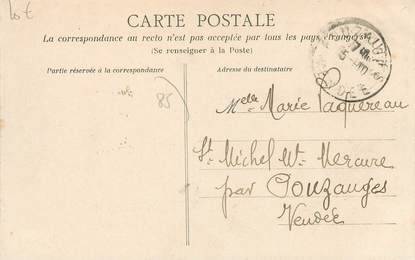 Lot
CARTE POSTALE
La correspondance au recto n'est pas acceptée par tous les pays étrangers
(Se renseigner à la Poste)
Partie réservée à la correspondance
Adresse du destinataire
85
Melle Marie Paquereau
St Michel Mt Mercure
par Pouzauges
Vendée